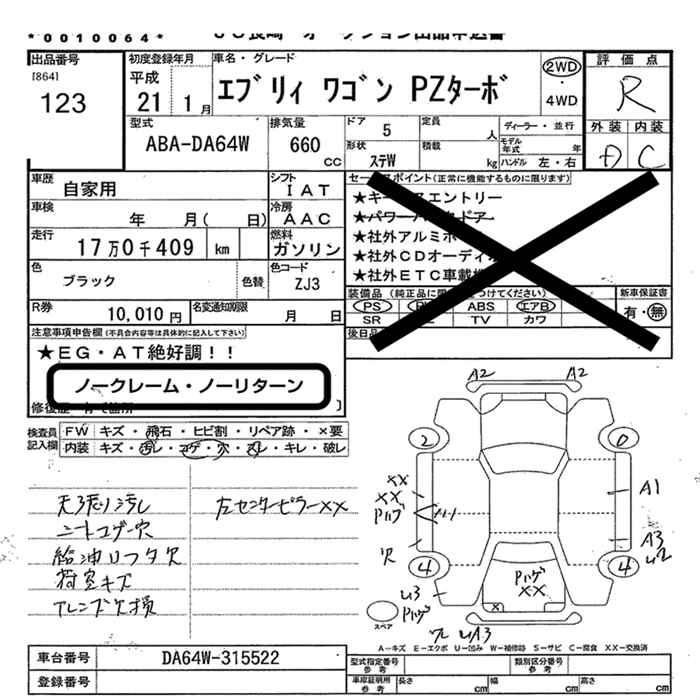 *0010064*
JU長崎 オークション出品申込書
出品番号
[864]
123
初度登録年月
平成
21 1月
車名・グレード
エブリィ ワゴン PZターボ
2WD
・
4WD
評価点
R
外装 内装
D C
型式
ABA-DA64W
排気量
660
CC
ドア 5
形状 ステW
定員 人
積載 kg
ディーラー・並行
モデル年式 年
ハンドル 左・右
車歴 自家用
シフト IAT
車検 年 月( 日)
冷房 AAC
走行 17万0千409 km
燃料 ガソリン
色 ブラック
色替
色コード ZJ3
R券 10,010円
名変通知期限 月 日
セールスポイント(正常に機能するものに限ります)
★キーレスエントリー
★パワー
★社外アルミホ
★社外CDオーディオ
★社外ETC車載
装備品(純正品に限
つけてください)
新車保証書
PS
ABS エアB
有・無
SR
TV カワ
後日品
注意事項申告欄(不具合内容等は具体的に記入して下さい)
★EG・AT絶好調!!
ノークレーム・ノーリターン
検査員記入欄
FW キズ・飛石・ヒビ割・リペア跡・×要
内装 キズ・汚レ・コゲ・穴・スレ・キレ・破レ
天張り汚れ
シートコゲ穴
給油リフタ欠
荷室キズ
左センターピラーXX
A2 A2
2 0
XX
XX
Pハゲ
A1
A3
4 4
Pハゲ
XX
Pハゲ
スペア
A-キズ E-エクボ U-凹み W-補修跡 S-サビ C-腐食 XX-交換済
車台番号 DA64W-315522
登録番号
型式指定番号 参考
類別区分番号 参考
車庫証明用 参考
長さ cm
幅 cm
高さ cm